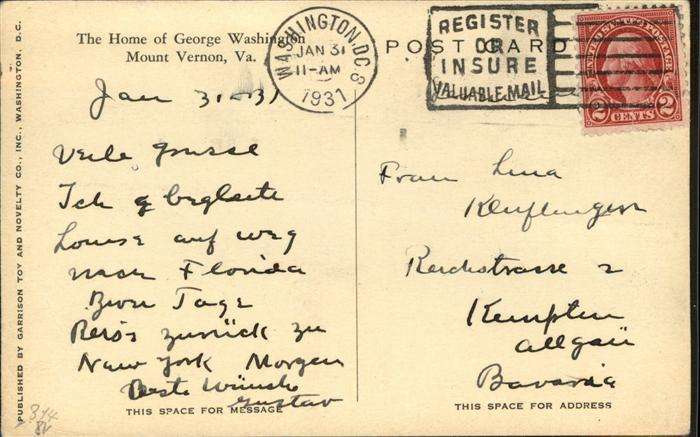 The Home of George Washington
Mount Vernon, Va.
POST CARD
WASHINGTON, D.C. 8
JAN 31
11-AM
1931
REGISTER
OR
INSURE
VALUABLE MAIL
2 CENTS 2
Jan 31-31
Viele Grüsse
Ich begleite
Louise auf weg
nach Florida
Zwei Tage
zurück zu
New York Morgen
Beste Wünsche
Gustav
THIS SPACE FOR MESSAGE
Frau Lina
Reichstrasse 2
Kempten
Allgäu
Bavaria
THIS SPACE FOR ADDRESS
PUBLISHED BY GARRISON TOY AND NOVELTY CO., INC., WASHINGTON, D.C.